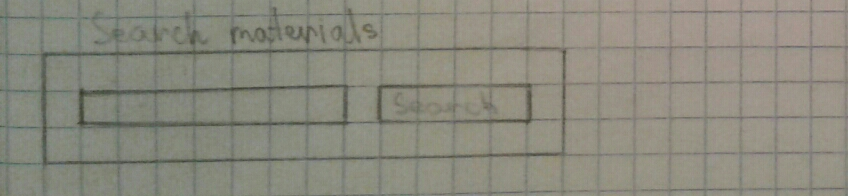 Search materials
Search